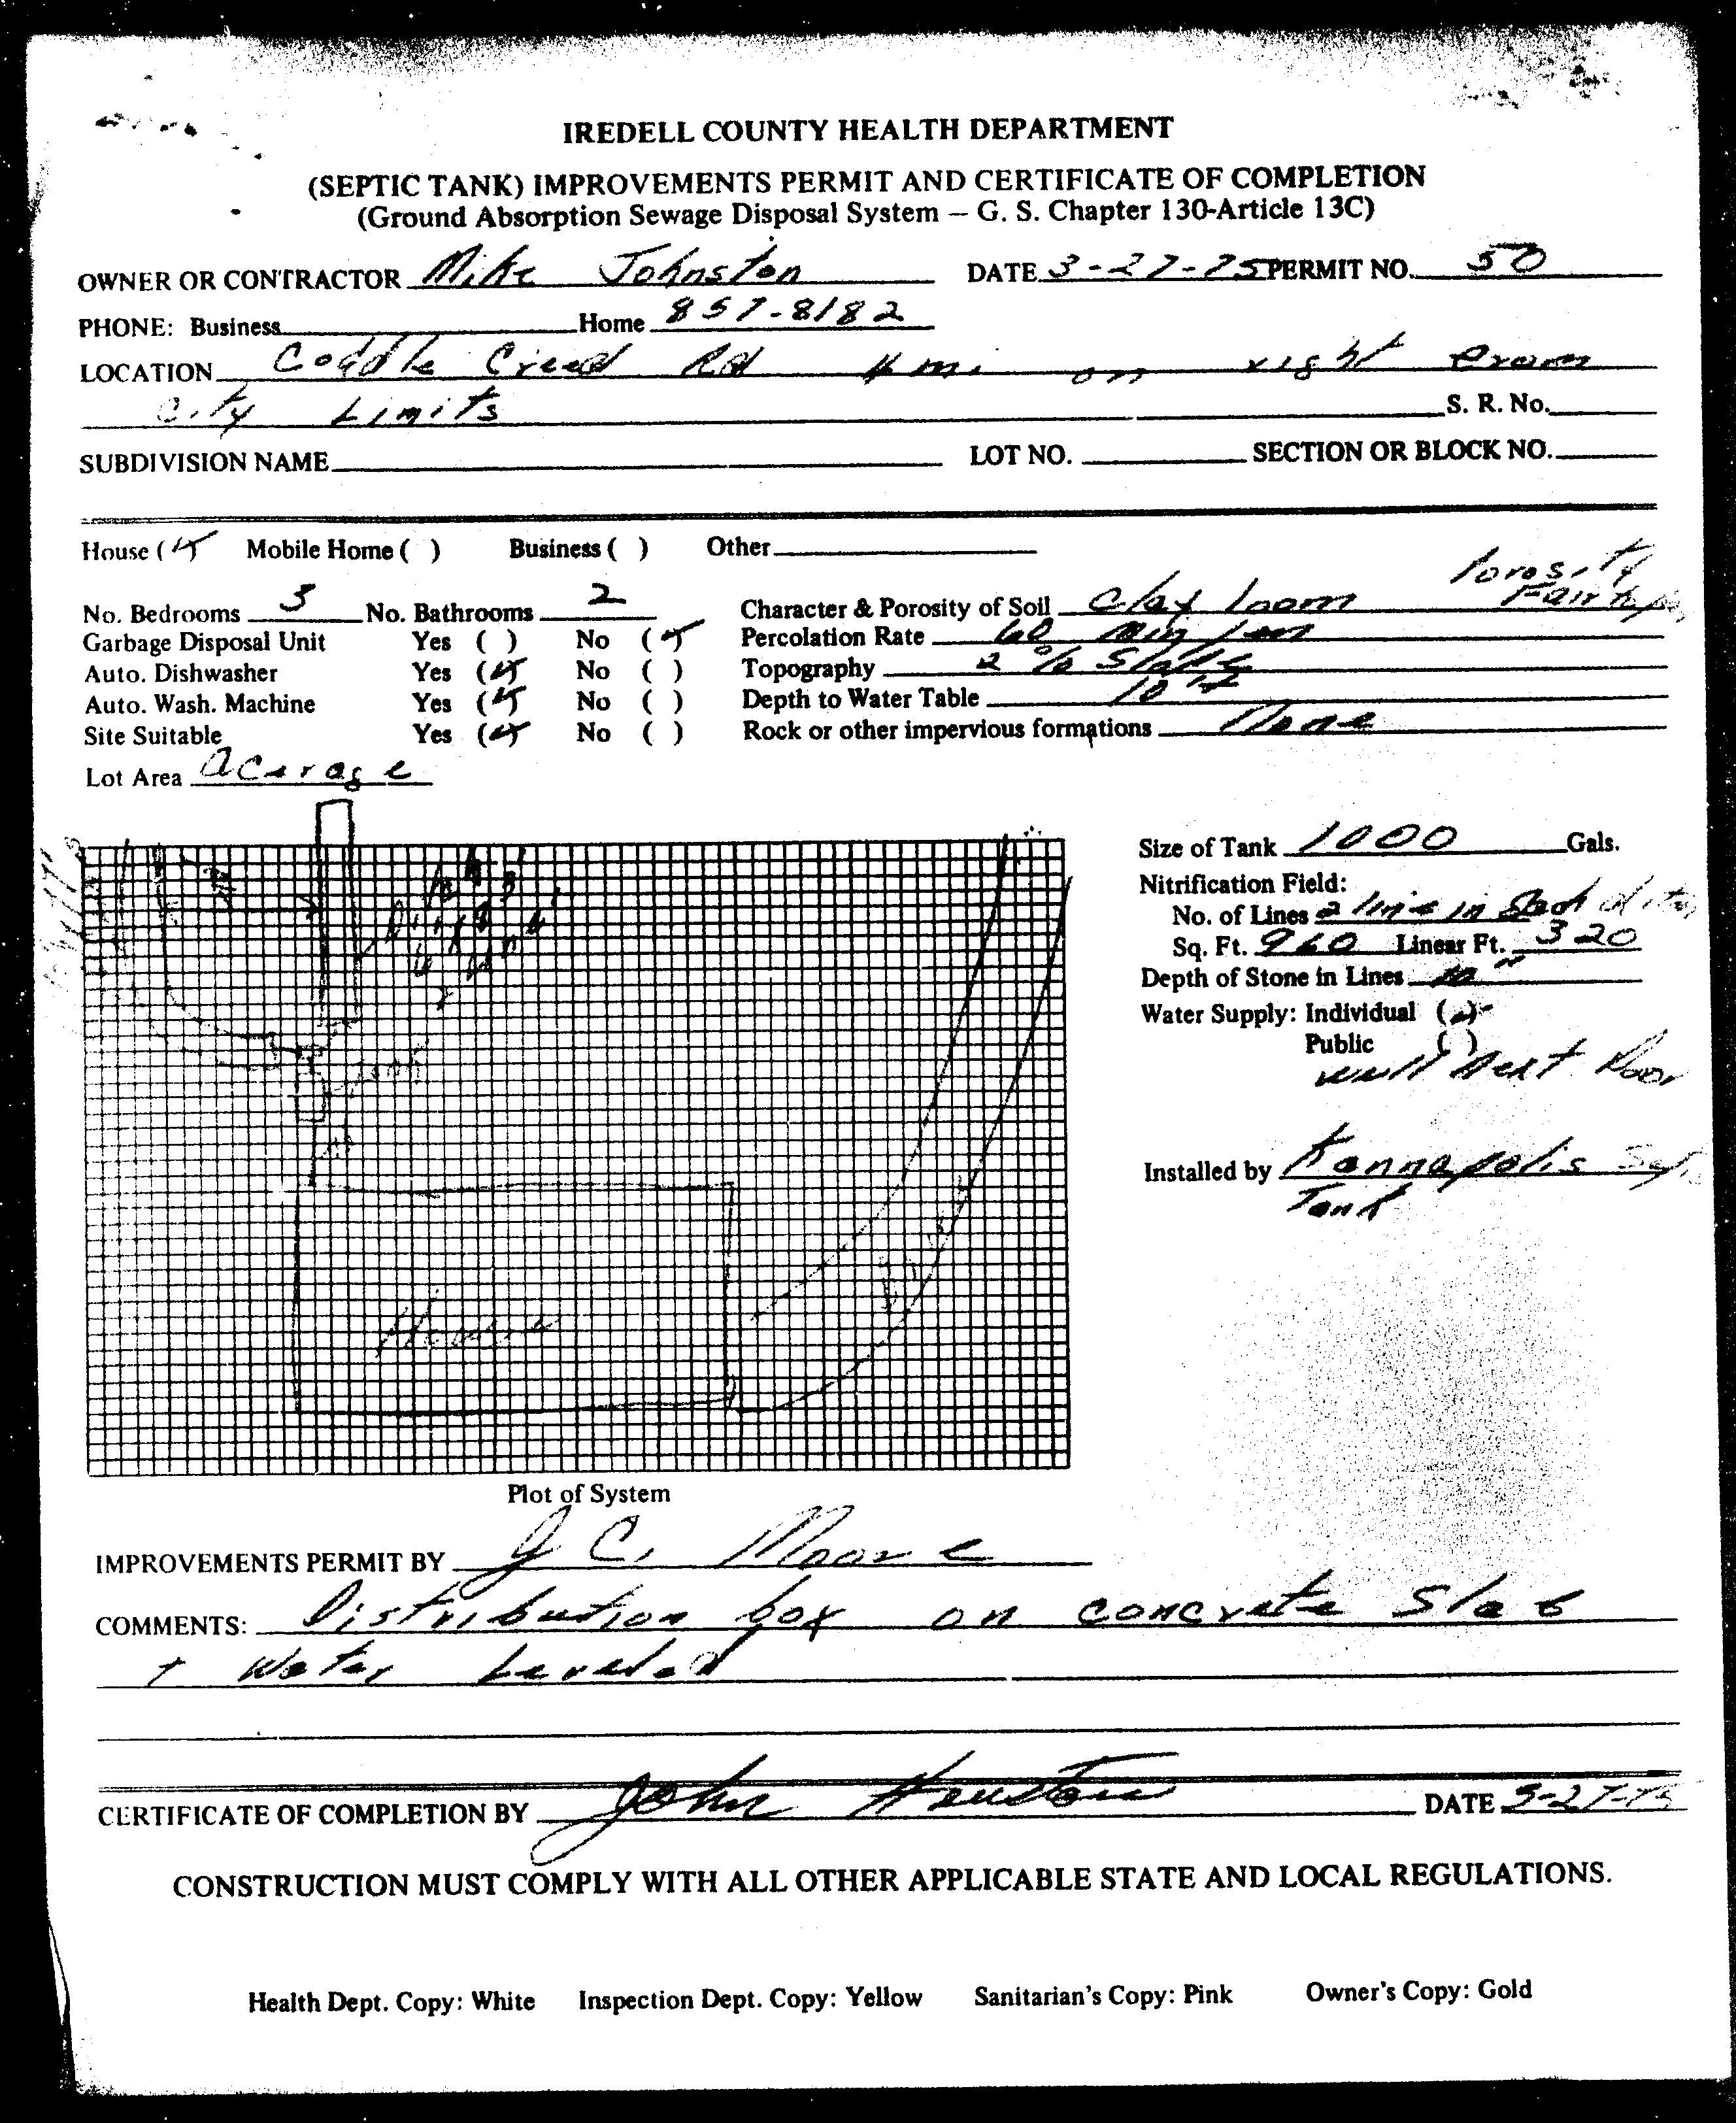 IREDELL COUNTY HEALTH DEPARTMENT
(SEPTIC TANK) IMPROVEMENTS PERMIT AND CERTIFICATE OF COMPLETION
(Ground Absorption Sewage Disposal System — G. S. Chapter 130-Article 13C)
OWNER OR CONTRACTOR Mike Johnston DATE 3-27-75 PERMIT NO. 50
PHONE: Business Home 857-8182
LOCATION Coddle Creed Rd 4 mi on right from
City Limits S. R. No.
SUBDIVISION NAME LOT NO. SECTION OR BLOCK NO.
House ( ) Mobile Home ( ) Business ( ) Other
Porosity
No. Bedrooms 3 No. Bathrooms 2 Character & Porosity of Soil Clay loom Fair
Garbage Disposal Unit Yes ( ) No (✓) Percolation Rate 60 min/
Auto. Dishwasher Yes (✓) No ( ) Topography 2 %
Auto. Wash. Machine Yes (✓) No ( ) Depth to Water Table 10
Site Suitable Yes (✓) No ( ) Rock or other impervious formations None
Lot Area
Size of Tank 1000 Gals.
Nitrification Field:
No. of Lines 2 line in
Sq. Ft. 960 Linear Ft. 320
Depth of Stone in Lines
Water Supply: Individual (✓)
Public ( )
well next Door
Installed by Kannapolis
Tank
House
Plot of System
IMPROVEMENTS PERMIT BY J C. Moore
COMMENTS: Distribution box on concrete Slab
+ Water Leveled
CERTIFICATE OF COMPLETION BY John Houston DATE
CONSTRUCTION MUST COMPLY WITH ALL OTHER APPLICABLE STATE AND LOCAL REGULATIONS.
Health Dept. Copy: White Inspection Dept. Copy: Yellow Sanitarian's Copy: Pink Owner's Copy: Gold